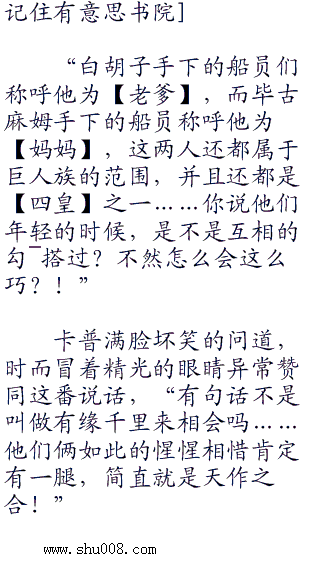 记住有意思书院]
“白胡子手下的船员们
称呼他为【老爹】，而毕古
麻姆手下的船员称呼他为
【妈妈】，这两人还都属于
巨人族的范围，并且还都是
【四皇】之一……你说他们
年轻的时候，是不是互相的
勾 搭过？不然怎么会这么
巧？！”
卡普满脸坏笑的问道，
时而冒着精光的眼睛异常赞
同这番说话，“有句话不是
叫做有缘千里来相会吗……
他们俩如此的惺惺相惜肯定
有一腿，简直就是天作之
合！”
www.shu008.com